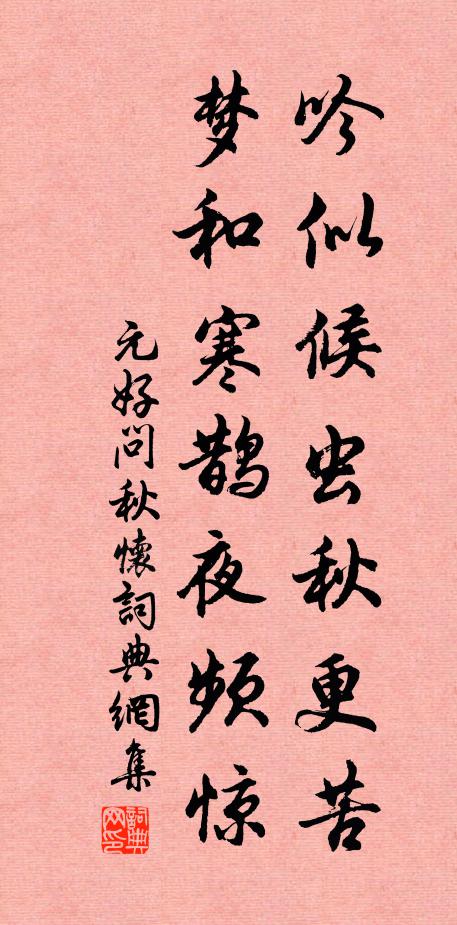 吟似候虫秋更苦
梦和寒鹊夜频惊
元好问秋懷詞典網集
詞典网印